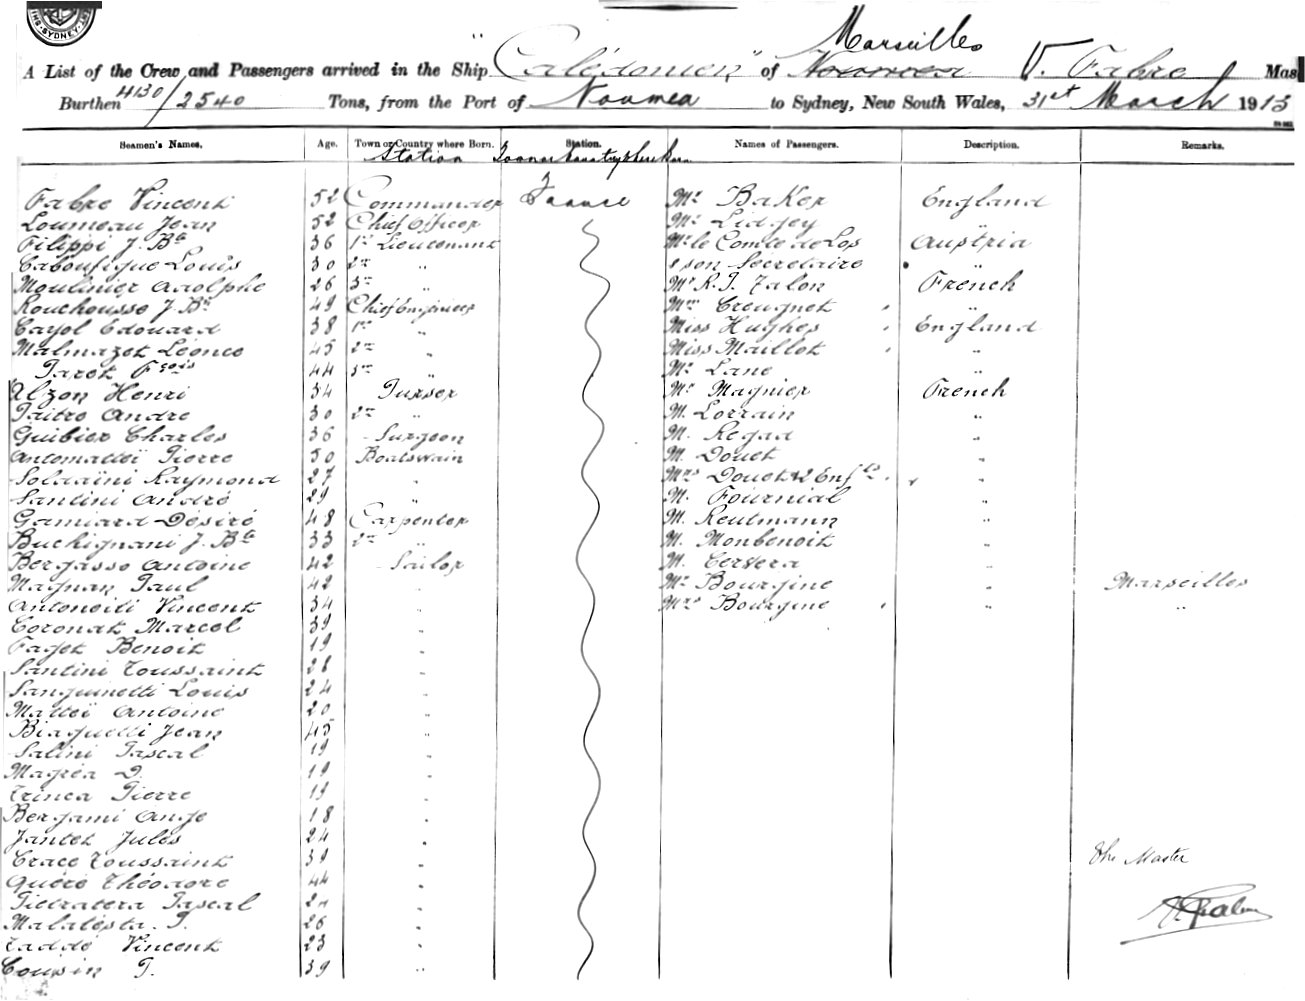 SYDNEY
A List of the Crew and Passengers arrived in the Ship "Calédonien" of Marseilles Noumea V. Fabre Mas
Burthen 4130/2540 Tons, from the Port of Noumea to Sydney, New South Wales, 31st March 1913
Seamen's Names. Age. Town or Country where Born. Station. Names of Passengers. Description. Remarks.
Station Town or Country where Born
Fabre Vincent 52 Commander France Mr Baker England
Loumeau Jean 52 Chief Officer Mr Lidgey "
Filippi J. Bte 36 1st Lieutenant Mr le Comte de Los Austria
Caboufigue Louis 30 2nd " & son Secretaire "
Moulinier Adolphe 26 3rd " Mr R. J. Talon French
Rouchousse J. Bte 49 Chief Engineer Mme Creugnet "
Cayol Edouard 38 1st " Miss Hughes England
Malmazet Léonce 45 2nd " Miss Maillot "
Paret Fçois 44 3rd " Mr Lane "
Alzon Henri 34 Purser Mr Magnier French
Paitre André 30 2nd " M. Lorrain "
Guibier Charles 36 Surgeon M. Regad "
Antomattei Pierre 50 Boatswain M. Douet "
Soldaïni Raymond 27 " Mrs Douet & 2 Enfts "
Santini André 29 " M. Fournial "
Gamiard Désiré 48 Carpenter M. Reutmann "
Buchignani J. Bte 33 2nd " M. Monbenoit "
Bergasso Antoine 42 Sailor M. Cervera "
Magnan Paul 42 " Mr Bourgine " Marseilles
Antonoiti Vincent 34 " Mrs Bourgine " "
Coronat Marcel 39 "
Faget Benoit 19 "
Santini Toussaint 28 "
Sanguinetti Louis 24 "
Matteï Antoine 20 "
Biaguetti Jean 45 "
Salini Pascal 19 "
Magrea D. 19 "
Trinca Pierre 19 "
Bergami Ange 18 "
Jantet Jules 24 "
Crace Toussaint 39 " The Master
Quéré Théodore 44 "
Pietratera Pascal 24 "
Malatesta. P. 26 "
Taddé Vincent 23 "
Cousin P. 39 "